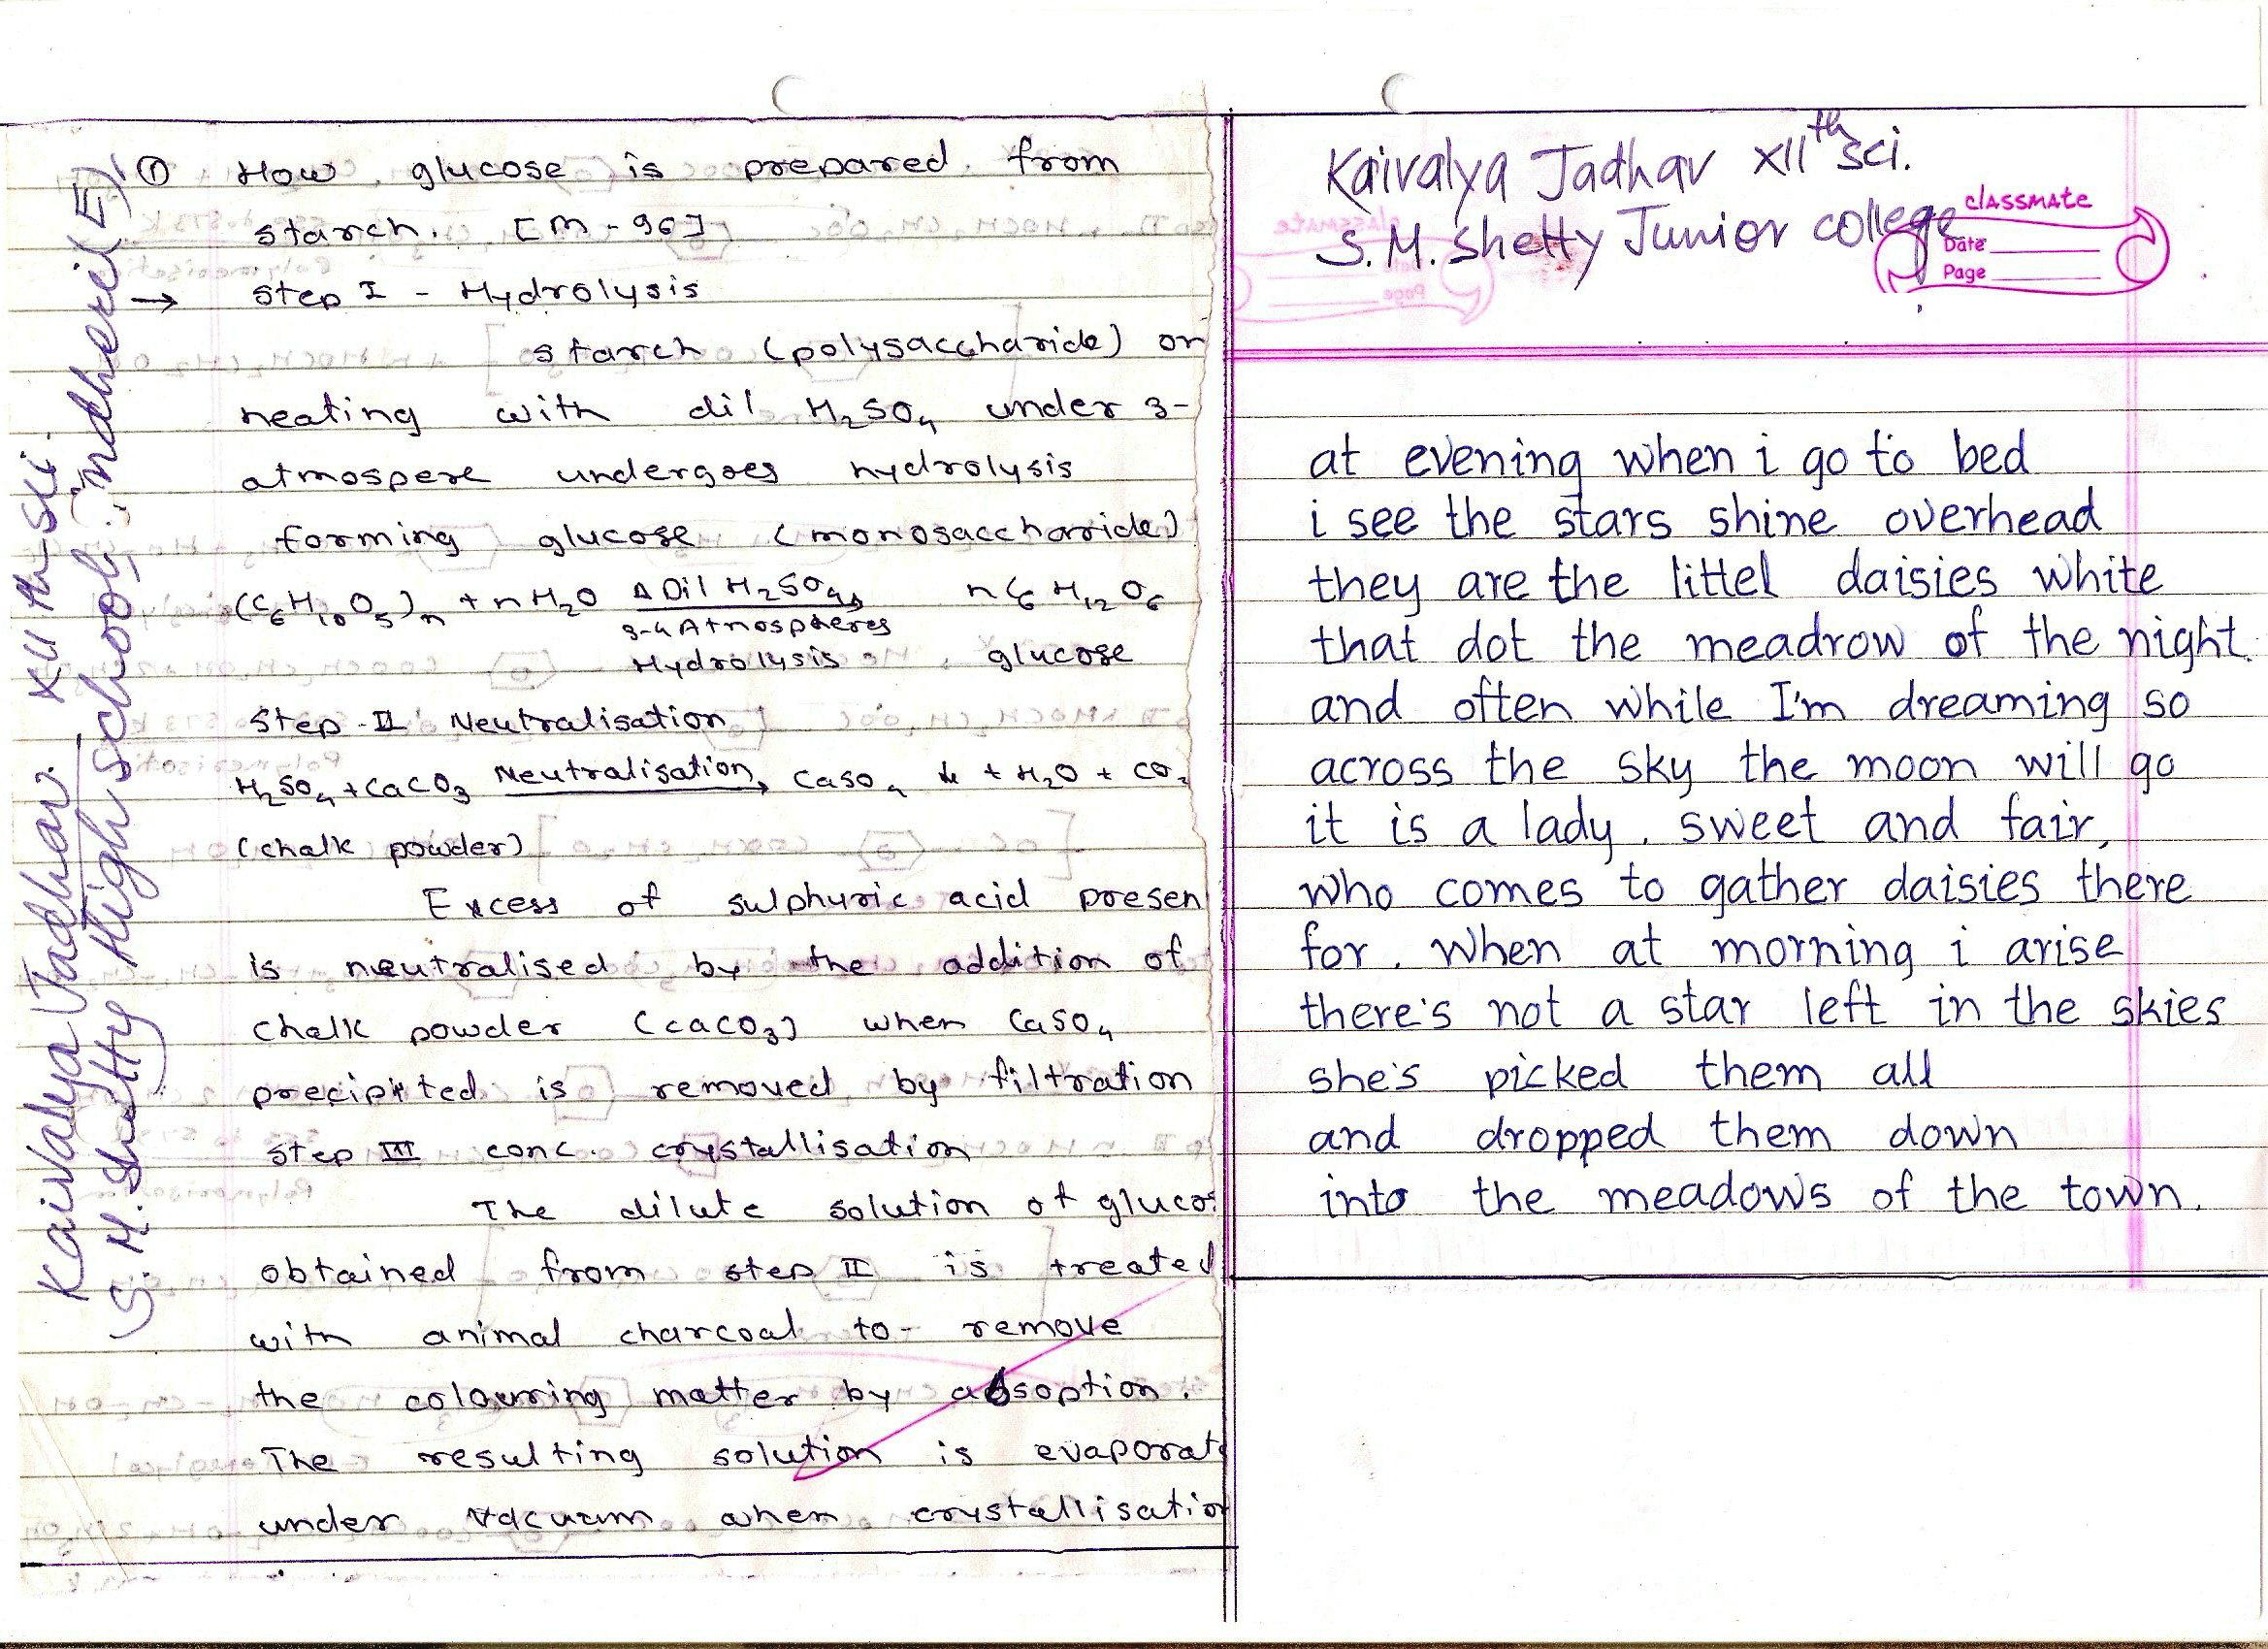 ① How glucose is prepared from
starch. [M-96]
→ Step I - Hydrolysis
starch (polysaccharide) on
heating with dil H₂SO₄ under 3-
atmospere undergoes hydrolysis
forming glucose (monosaccharide)
(C₆H₁₀O₅)n + nH₂O Δ Dil H₂SO₄ → nC₆H₁₂O₆
3-4 Atmospheres
Hydrolysis glucose
Step-II Neutralisation
H₂SO₄ + CaCO₃ Neutralisation → CaSO₄ ↓ + H₂O + CO₂
(chalk powder)
Excess of sulphuric acid presen
is neutralised by the addition of
chalk powder (CaCO₃) when CaSO₄
precipited is removed by filtration
Step III conc. crystallisation
The dilute solution of glucos
obtained from step II is treated
with animal charcoal to- remove
the colouring matter by absoption.
The resulting solution is evaporate
under vacuum when crystallisation
Kaivalya Jadhav. XII th sci.
S. M. Shetty High school
Kaivalya Jadhav XIIth sci.
S. M. Shetty Junior college
classmate
Date
Page
at evening when i go to bed
i see the stars shine overhead
they are the littel daisies white
that dot the meadrow of the night.
and often while I'm dreaming so
across the sky the moon will go
it is a lady, sweet and fair,
who comes to gather daisies there
for, when at morning i arise
there's not a star left in the skies
she's picked them all
and dropped them down
into the meadows of the town.